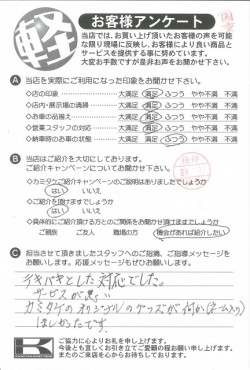 軽
お客様アンケート
当店では、お買い上げ頂いたお客様の声を可能
な限り現場に反映し、お客様により良い商品と
サービスを提供する事に努めています。
大変お手数ですが是非お声をお聞かせ下さい。
A 当店を実際にご利用になった印象をお聞かせ下さい。
◇店の印象 大満足 満足 ふつう やや不満 不満
◇店内・展示場の清掃 大満足 満足 ふつう やや不満 不満
◇お車の品揃え 大満足 満足 ふつう やや不満 不満
◇営業スタッフの対応 大満足 満足 ふつう やや不満 不満
◇納車時のお車の状態 大満足 満足 ふつう やや不満 不満
B 当店はご紹介を大切にしております。
ご紹介キャンペーンについてお聞かせ下さい。
◇カミタケご紹介キャンペーンのご説明はありましたでしょうか
はい いいえ
◇ご紹介を頂けますでしょうか
はい いいえ
◇具体的にご紹介頂ける方とのご関係をお聞かせ頂けますでしょうか
ご親族 ご友人 職場の方 機会があれば紹介したい
C 担当させて頂きましたスタッフへのご指摘、ご指導メッセージを
お願いします。応援メッセージもぜひお願いします。
テキパキとした対応でした。
サービスが悪い
カミタケのオリジナルのグッズが何か
ほしかったです。
K
ご協力に心よりお礼を申し上げます。
今後とも宜しくお引き立てご愛顧の程お願い申し上げます。
またのご来店を心からお待ちしております。